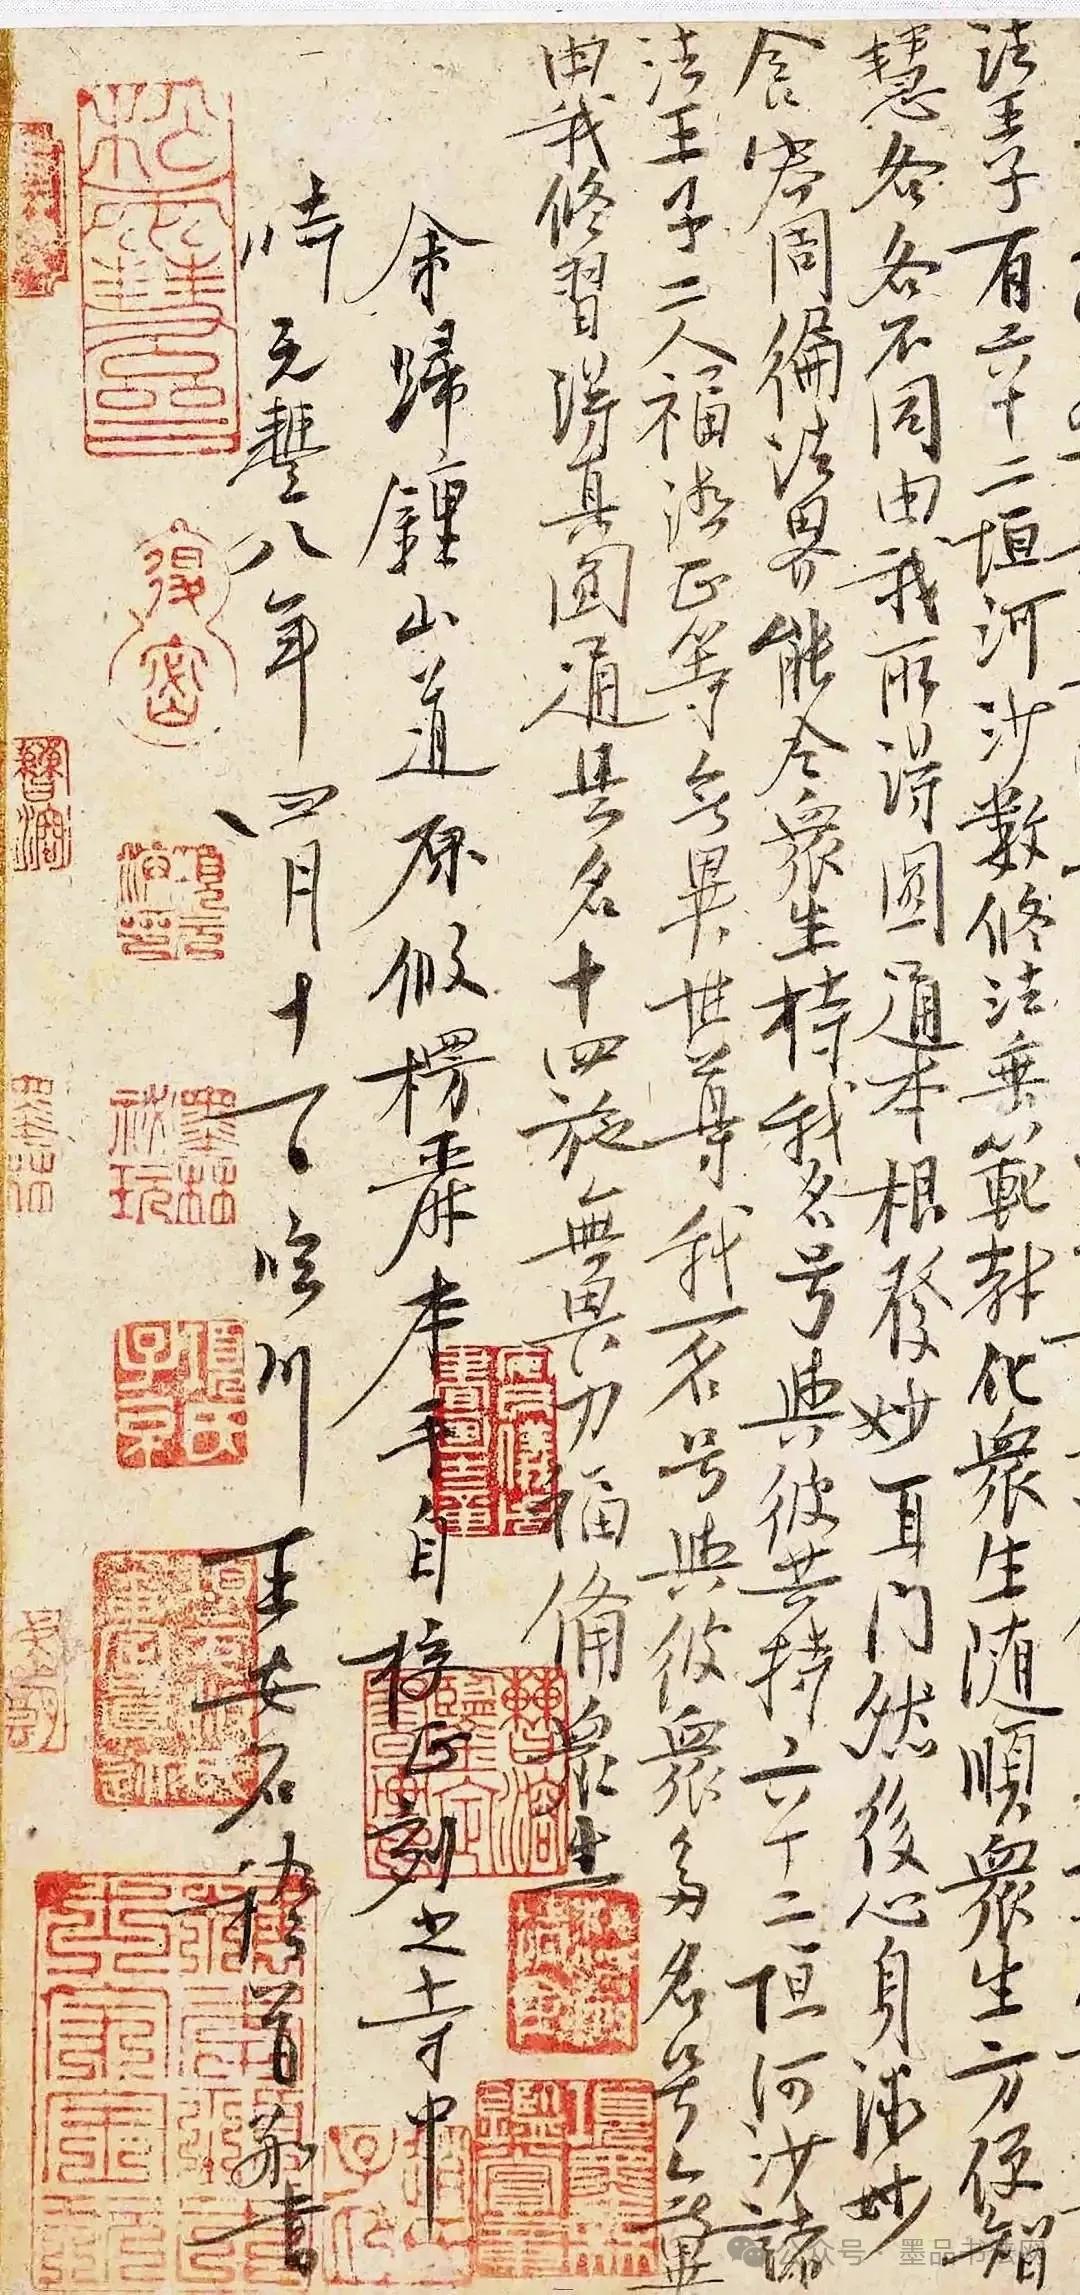 法王子有六十二恒河沙數修法垂範教化衆生随順衆生方便智
慧各各不同由我所得圓通本根發妙耳門然後心身微妙
含容周徧法界能令衆生持我名号與彼共持六十二恒河沙諸
法王子二人福德正等無異世尊我一名号與彼衆多名号無異
由我修習得真圓通是名十四施無畏力福備衆生
余歸鍾山道原假楞嚴本手自校正刻之寺中
時元豐八年四月十一日臨川王安石稽首敬書
項氏子京
墨林祕玩
子京
公众号·墨品书法网